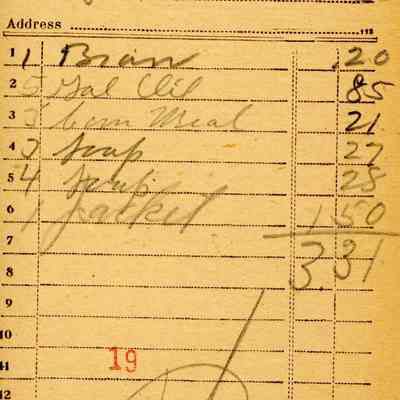 Address
1 1 Bran .20
2 5 Gal Oil 85
3 3 Corn Meal 21
4 3 Soap 27
5 4 Soup 28
6 1 Jacket 1 50
7 3.31
8
9
10
11 19
12